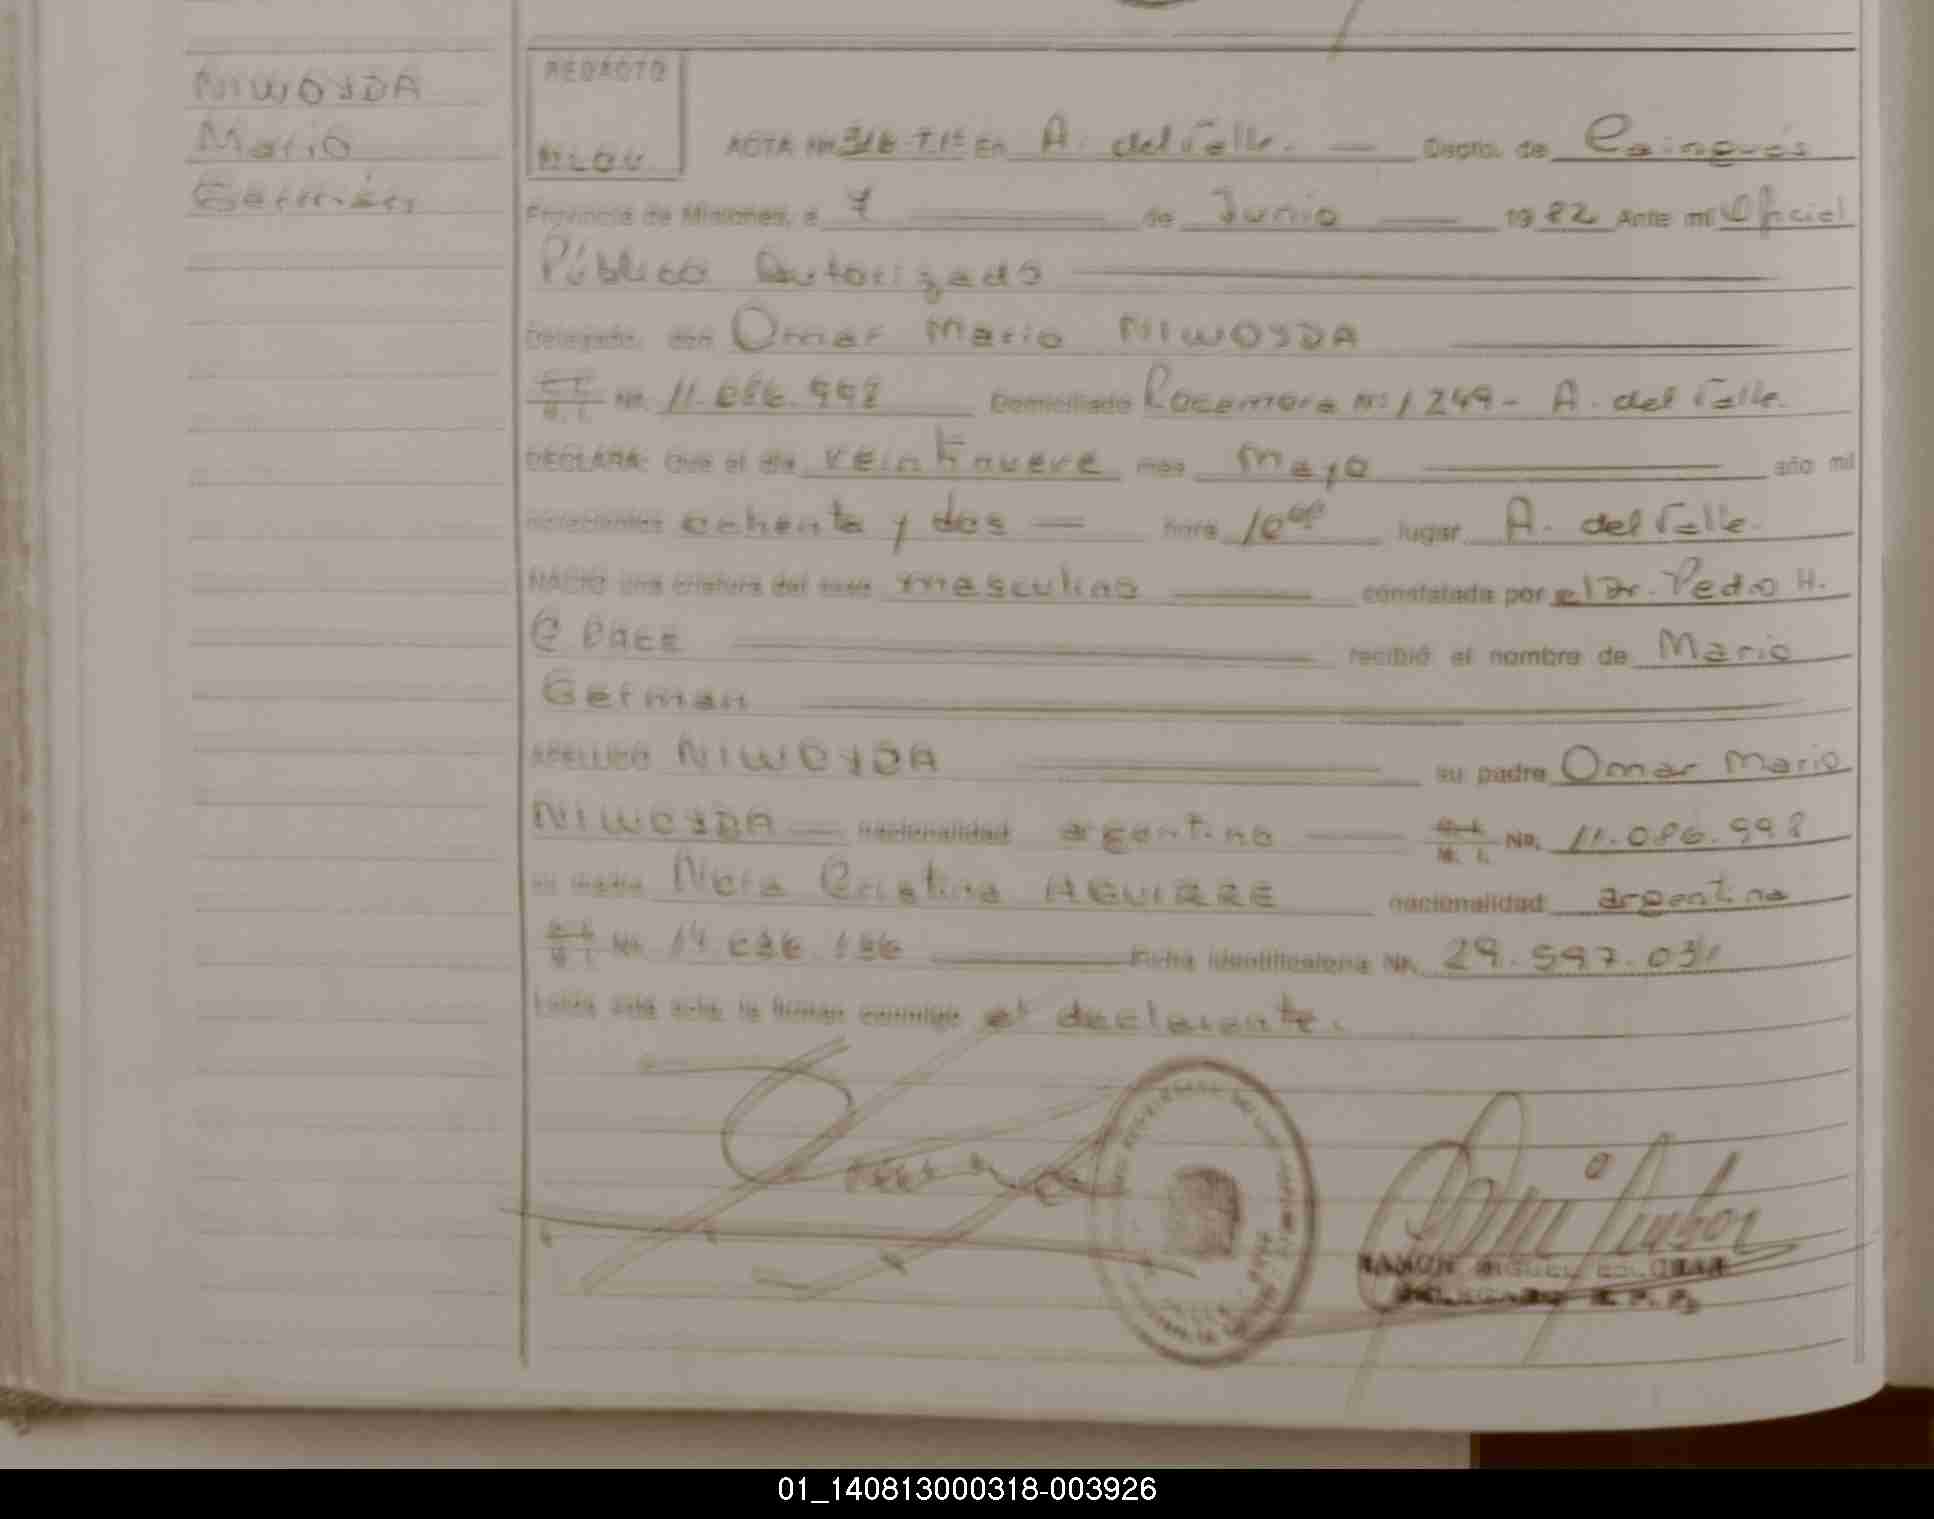 NIWOYDA
Mario
Germán
REDACTO
ACTA Nº 316 T.1º En A. del Valle. — Depto. de Cainguás
Provincia de Misiones, a 7 de Junio 1982 Ante mí Oficial
Público Autorizado
Delegado, don Omar Mario NIWOYDA
M. I. Nº. 11.086.998 Domiciliado Rocamora nº 1249 - A. del Valle.
DECLARA: Que el día veintinueve mes Mayo año mil
novecientos ochenta y dos — hora 10 lugar A. del Valle.
NACIO una criatura del sexo masculino constatada por el Dr. Pedro H.
recibió el nombre de Mario
German
APELLIDO NIWOYDA su padre Omar Mario
NIWOYDA — nacionalidad argentino — M. I. No. 11.086.998
su madre Cristina AGUIRRE nacionalidad argentina
M. I. Nº. 14 Ficha identificatoria Nº. 29.597.031
Leída esta acta la firman conmigo el declarante.
RAMON MIGUEL ESCOBAR
DELEGADO R.P.P.
01_140813000318-003926